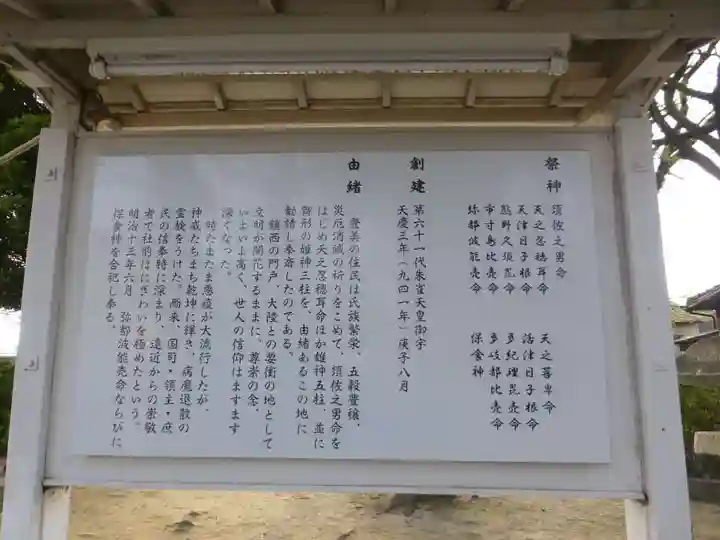 祭神
須佐之男命
天之忍穂耳命
天之菩卑命
天津日子根命
活津日子根命
熊野久須毘命
多紀理毘売命
市寸島比売命
多岐都比売命
弥都波能売命
保食神
創建
第六十一代朱雀天皇御宇
天慶三年(九四一年)庚子八月
由緒
登美の住民は氏族繁栄、五穀豊穣、
災厄消滅の祈りをこめて、須佐之男命を
はじめ天之忍穂耳命ほか雄神五柱、並に
御形の姫神三柱を、由緒あるこの地に
勧請し奉斎したのである。
鎮西の門戸、大陸との要衝の地として
文明が開花するままに、尊崇の念、
いよいよ高く、世人の信仰はますます
深くなった。
時たまたま悪疫が大流行したが、
神威たちまち乾坤に輝き、病魔退散の
霊験をうけた。爾来、国司・領主・庶
民の信奉特に深まり、遠近からの崇敬
者で社前はにぎわいを極めたという。
明治十三年六月 弥都波能売命ならびに
保食神を合祀し奉る。